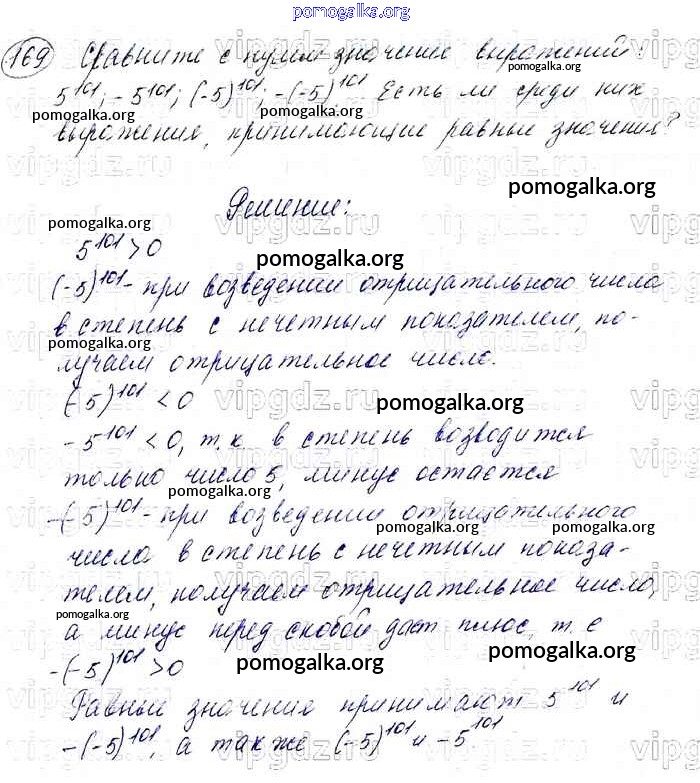 pomogalka.org
169 Сравните с нулем значение выражений:
5^101; -5^101; (-5)^101; -(-5)^101 Есть ли среди них
pomogalka.org pomogalka.org pomogalka.org
выражения, принимающие равные значения?
vipgdz.ru vipgdz.ru vipgdz.ru
pomogalka.org
Решение:
pomogalka.org
5^101 > 0
pomogalka.org
(-5)^101 - при возведении отрицательного числа
в степень с нечетным показателем, по-
pomogalka.org pomogalka.org
лучаем отрицательное число.
(-5)^101 < 0
pomogalka.org
-5^101 < 0, т.к. в степень возводится
только число 5, минус остаётся
pomogalka.org
-(-5)^101 - при возведении отрицательного
pomogalka.org pomogalka.org
числа в степень с нечетным показа-
телем, получаем отрицательное число,
pomogalka.org
а минус перед скобой даст плюс, т.е
-(-5)^101 > 0
pomogalka.org pomogalka.org
Равные значения принимают 5^101 и
-(-5)^101, а также (-5)^101 и -5^101